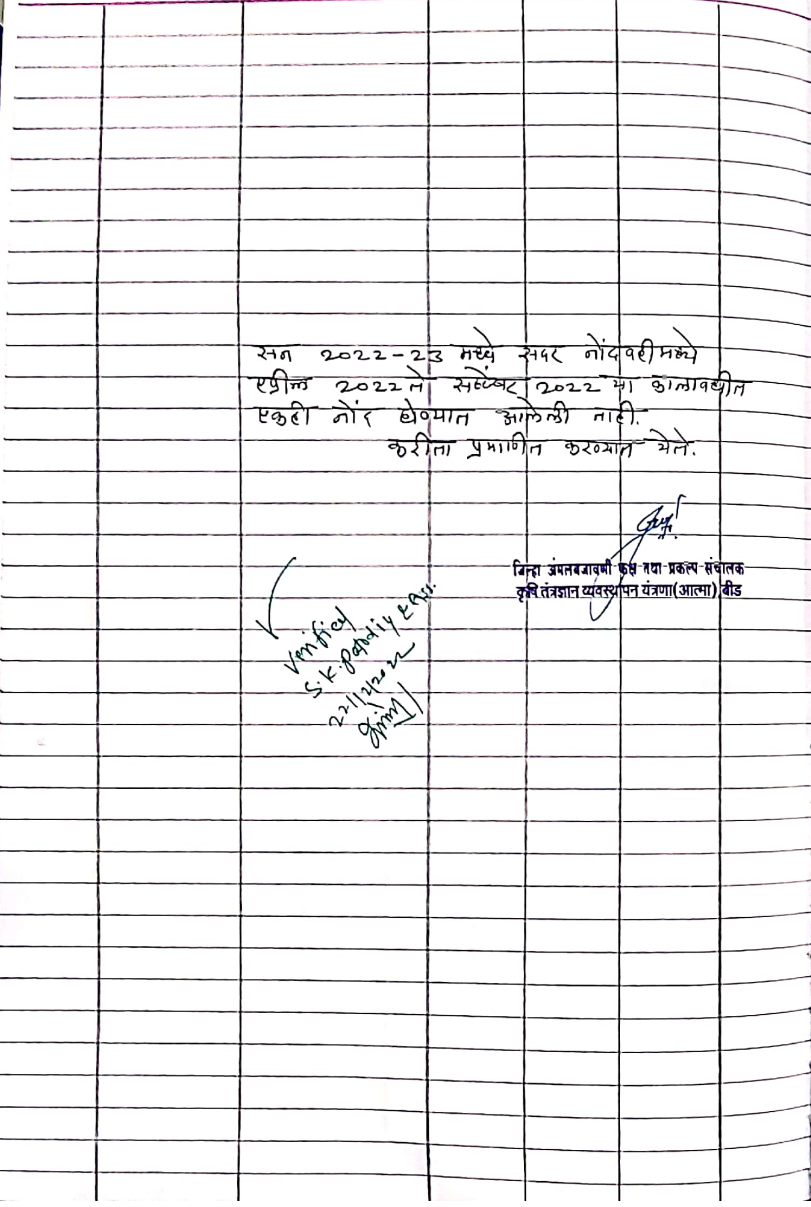 सन 2022-23 मध्ये सदर नोंदवहीमध्ये
एप्रील 2022 ते सप्टेंबर 2022 या कालावधीत
एकही नोंद घेण्यात आलेली नाही.
करीता प्रमाणीत करण्यात येते.
जिल्हा अंमलबजावणी कक्ष तथा प्रकल्प संचालक
कृषि तंत्रज्ञान व्यवस्थापन यंत्रणा(आत्मा) बीड
Verified
S.K.
22/12/2022